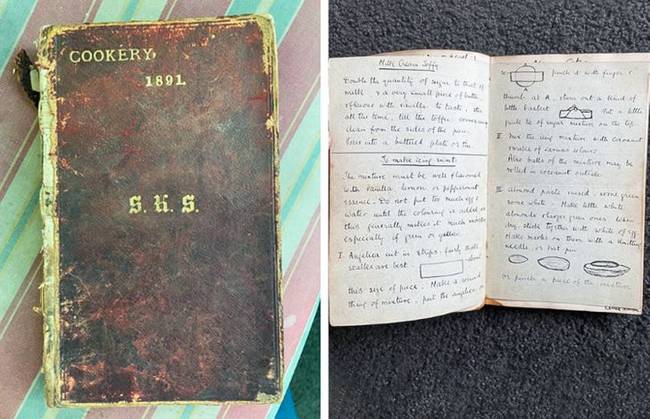 COOKERY,
1891.
S. H. S.
Milk Cream Toffy
Double the quantity of sugar to that of
milk & a very small piece of butter
flavour with vanilla to taste, stir
all the time, till the toffee comes
clean from the sides of the pan.
Pour into a buttered plate or tin
To make icing mints
The mixture must be well flavoured
with Vanilla, lemon or peppermint
essence. Do not put too much egg &
water until the colouring is added as
this generally makes it much moister
especially if green or yellow.
I Angelica cut in strips. fairly small
scales are best. about
this size of piece. Make a round
thing of mixture, put the angelica on
pinch it with finger &
thumb at A,
little basket Put a little
of sugar mixture on the top
II Mix the icing mixture with coconut
make of various colours
Also balls of the mixture may be
rolled in coconut outside.
III Almond paste mixed. some green
some white. Make little white
almonds & larger green ones
dry, stick together with white of egg
Make marks on them with a knitting
needle, or hat pin
or pinch a piece of the mixture